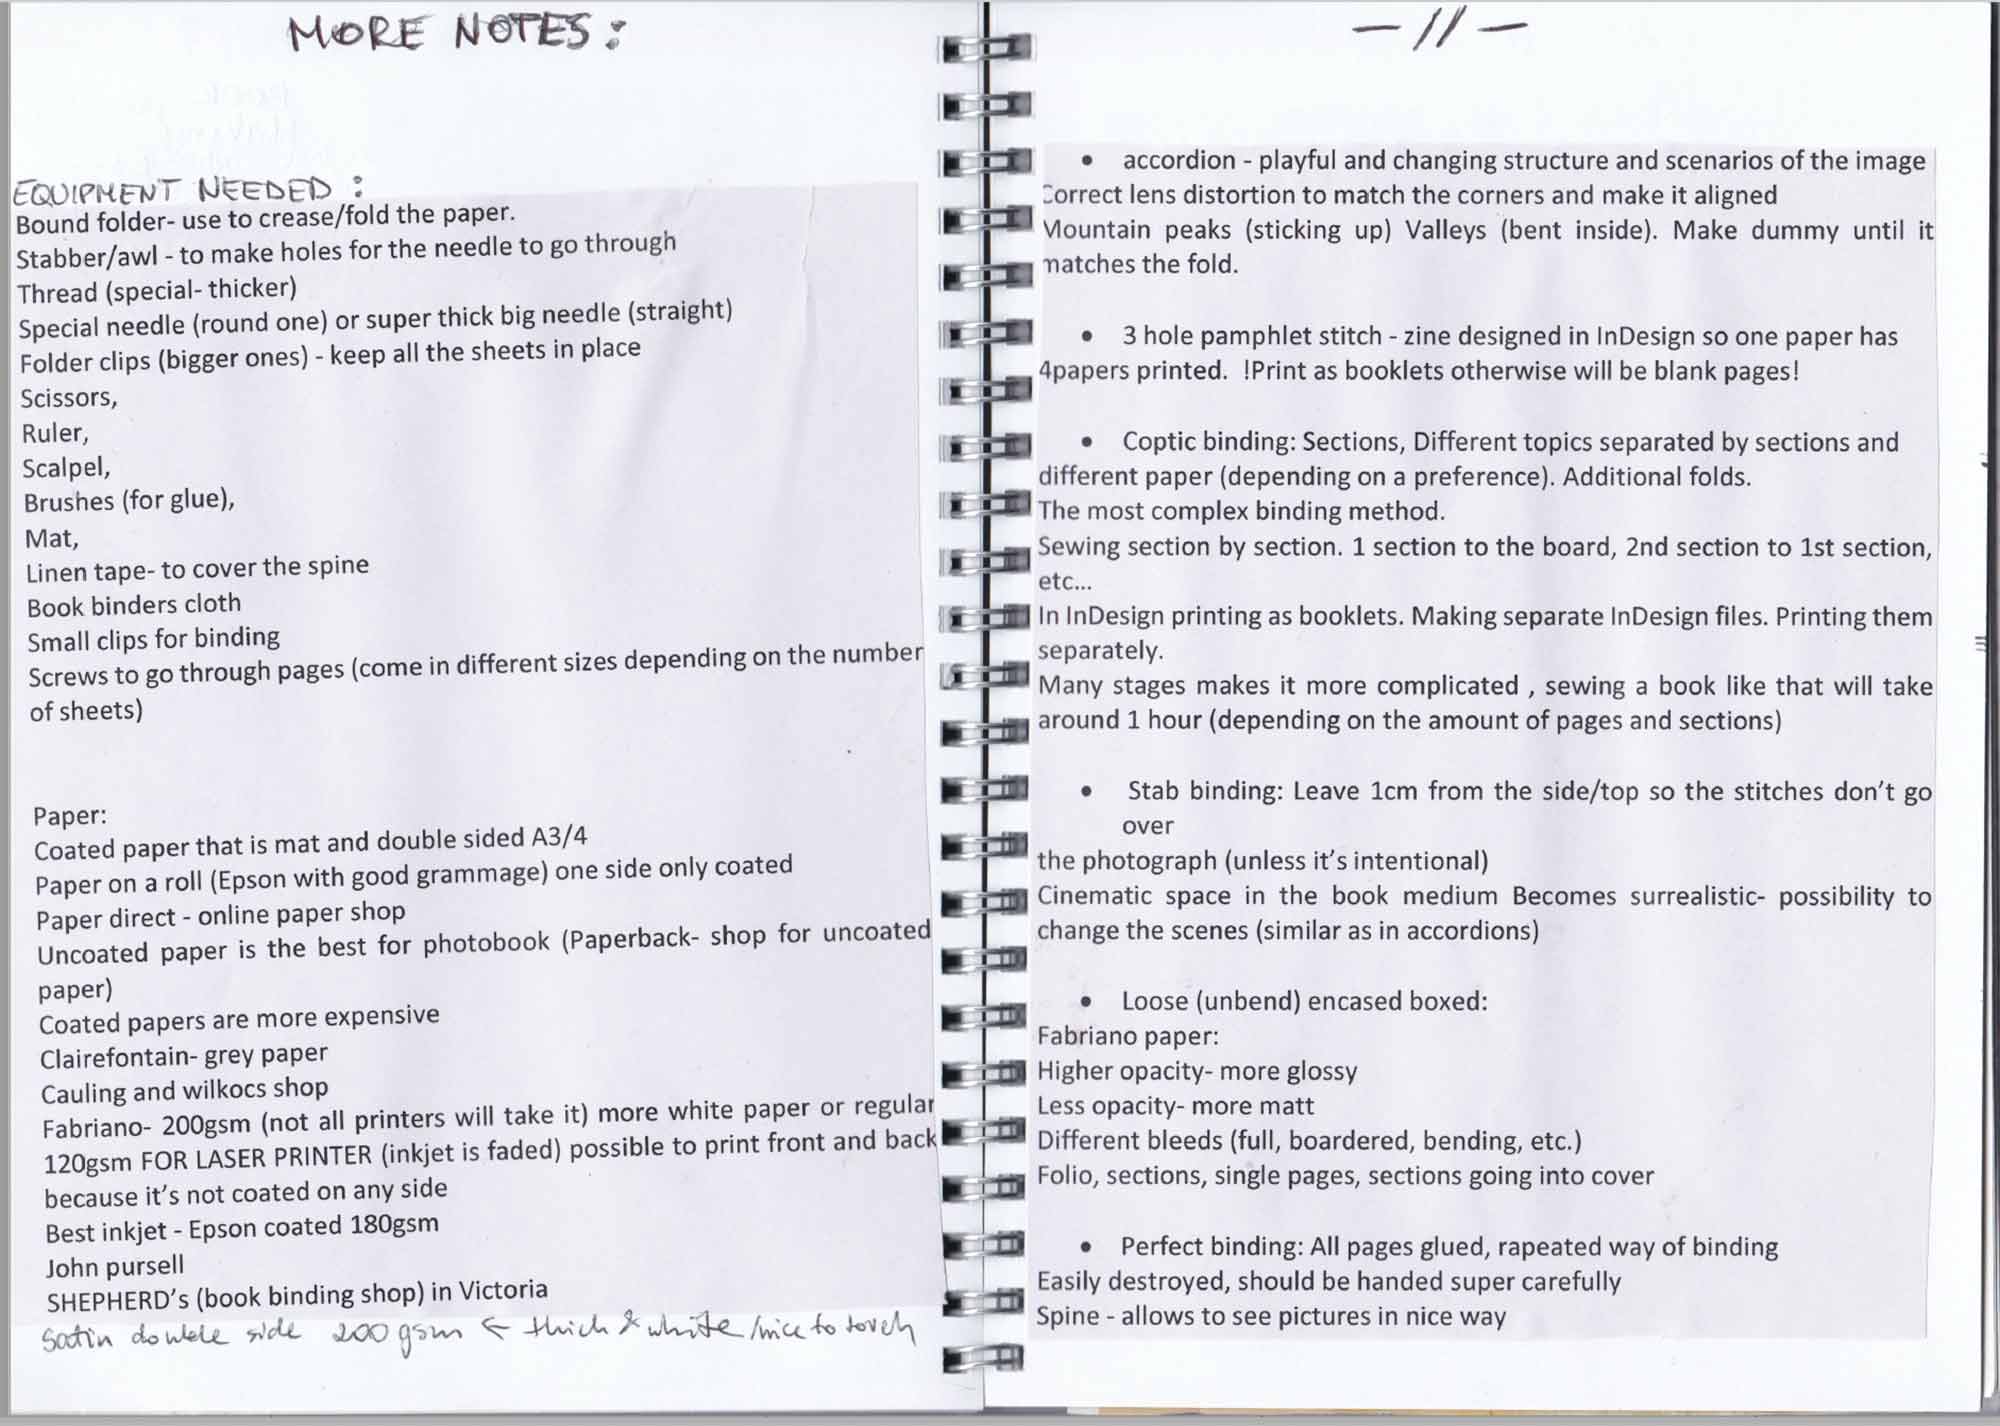 MORE NOTES:
EQUIPMENT NEEDED :
Bound folder- use to crease/fold the paper.
Stabber/awl - to make holes for the needle to go through
Thread (special- thicker)
Special needle (round one) or super thick big needle (straight)
Folder clips (bigger ones) - keep all the sheets in place
Scissors,
Ruler,
Scalpel,
Brushes (for glue),
Mat,
Linen tape- to cover the spine
Book binders cloth
Small clips for binding
Screws to go through pages (come in different sizes depending on the number
of sheets)
Paper:
Coated paper that is mat and double sided A3/4
Paper on a roll (Epson with good grammage) one side only coated
Paper direct - online paper shop
Uncoated paper is the best for photobook (Paperback- shop for uncoated
paper)
Coated papers are more expensive
Clairefontain- grey paper
Cauling and wilkocs shop
Fabriano- 200gsm (not all printers will take it) more white paper or regular
120gsm FOR LASER PRINTER (inkjet is faded) possible to print front and back
because it's not coated on any side
Best inkjet - Epson coated 180gsm
John pursell
SHEPHERD's (book binding shop) in Victoria
Satin double side 200gsm ← thick & white/nice to touch
— // —
• accordion - playful and changing structure and scenarios of the image
Correct lens distortion to match the corners and make it aligned
Mountain peaks (sticking up) Valleys (bent inside). Make dummy until it
matches the fold.
• 3 hole pamphlet stitch - zine designed in InDesign so one paper has
4papers printed. !Print as booklets otherwise will be blank pages!
• Coptic binding: Sections, Different topics separated by sections and
different paper (depending on a preference). Additional folds.
The most complex binding method.
Sewing section by section. 1 section to the board, 2nd section to 1st section,
etc...
In InDesign printing as booklets. Making separate InDesign files. Printing them
separately.
Many stages makes it more complicated , sewing a book like that will take
around 1 hour (depending on the amount of pages and sections)
• Stab binding: Leave 1cm from the side/top so the stitches don't go
over
the photograph (unless it's intentional)
Cinematic space in the book medium Becomes surrealistic- possibility to
change the scenes (similar as in accordions)
• Loose (unbend) encased boxed:
Fabriano paper:
Higher opacity- more glossy
Less opacity- more matt
Different bleeds (full, boardered, bending, etc.)
Folio, sections, single pages, sections going into cover
• Perfect binding: All pages glued, rapeated way of binding
Easily destroyed, should be handed super carefully
Spine - allows to see pictures in nice way